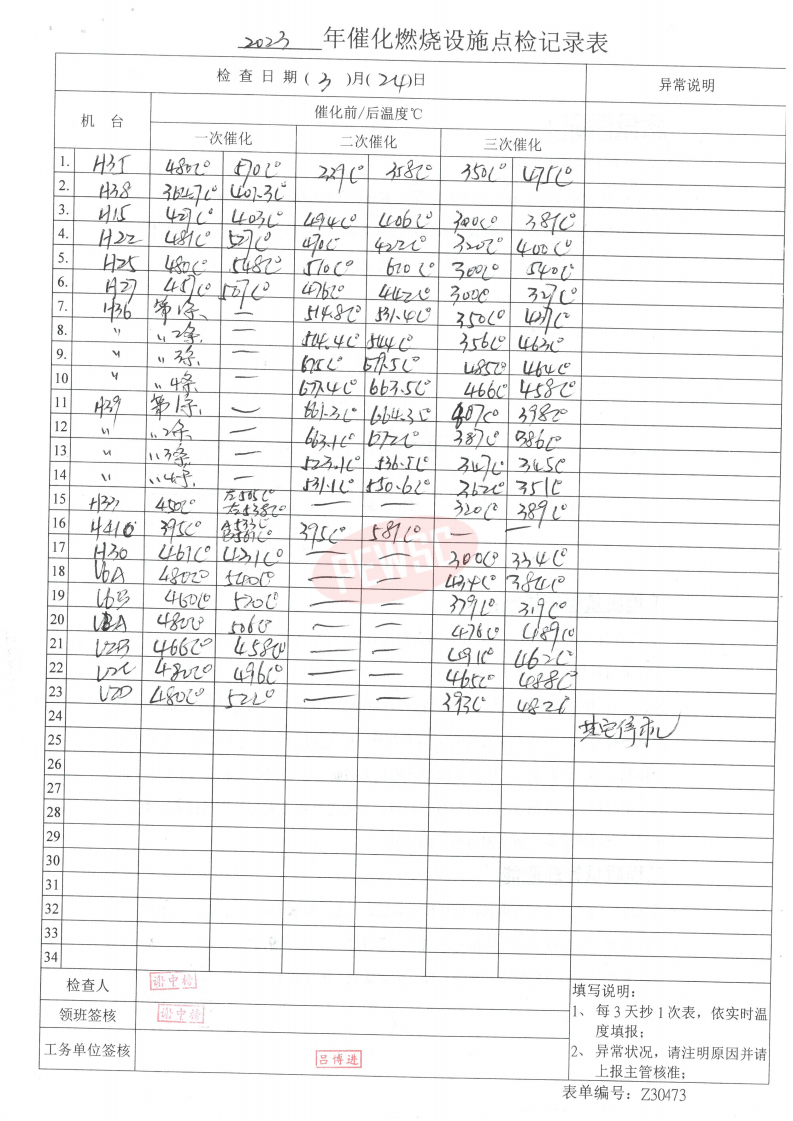 2023 年催化燃烧设施点检记录表
检查日期(3)月(24)日 异常说明
机台 催化前/后温度℃
一次催化 二次催化 三次催化
1. H35 480C° 570C° 229C° 358C° 350C° 475C°
2. H38 364.7C° 401.3C°
3. H15 427C° 403C° 494C° 406C° 300C° 381C°
4. H22 481C° 527C° 470C° 422C° 320C° 400C°
5. H25 480C° 548C° 510C° 610C° 300C° 540C°
6. H27 457C° 507C° 476C° 442C° 300C 327C°
7. H36 第1条 — 514.8C° 531.4C° 350C° 427C°
8. 〃 〃2条 — 514.4C° 544C° 356C° 463C°
9. 〃 〃3条 — 675C° 679.5C° 485C° 464C°
10 〃 〃4条 — 677.4C° 663.5C° 466C° 458C°
11 H39 第1条 — 661.3C° 664.3C° 407C° 398C°
12 〃 〃2条 — 663.1C° 672C° 387C° 386C°
13 〃 〃3条 — 523.1C° 536.5C° 347C° 345C
14 〃 〃4条 — 531.1C° 550.6C° 362C° 351C
15 H33 450C° 左505C° 右538C° — — 320C° 389C°
16 H410 395C° 533C° 561C° 395C 587C° — —
17 H30 461C° 431C° — — 300C° 334C°
18 U6A 480C° 540C° — — 434C° 384C°
19 U6B 460C° 520C° — — 379C° 319C°
20 480C° 506C° — — 476C° 489C°
21 U2B 466C° 458C° — — 491C° 462C°
22 U2C 480C° 496C° — — 465C° 488C°
23 U2D 480C° 522C° — — 393C° 482C°
24 其它停机
25
26
27
28
29
30
31
32
33
34
PEWSC
检查人
领班签核
工务单位签核 吕博进
填写说明：
1、每3天抄1次表，依实时温
度填报；
2、异常状况，请注明原因并请
上报主管核准；
表单编号：Z30473